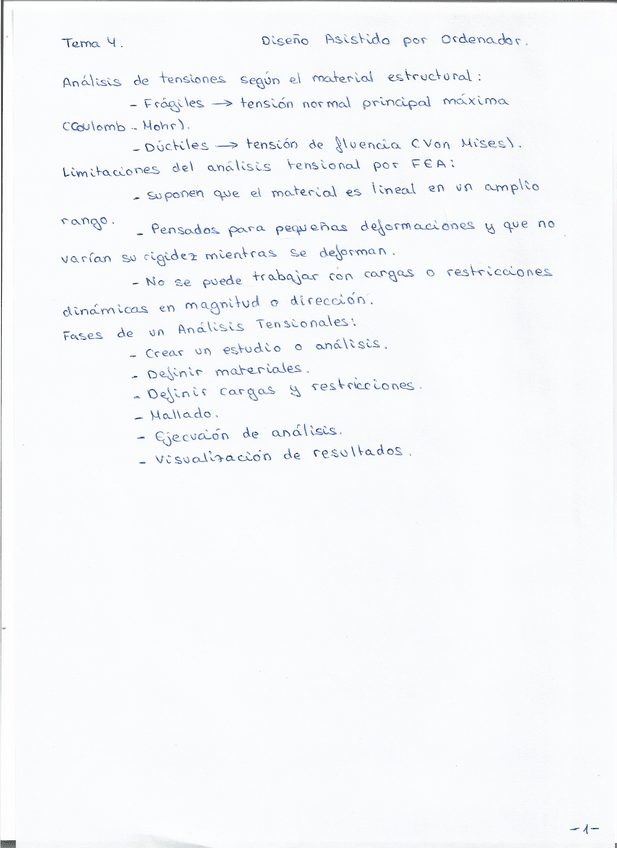 Tema 4. Diseño Asistido por Ordenador.
Análisis de tensiones según el material estructural:
- Frágiles → tensión normal principal máxima
(Coulomb - Mohr).
- Dúctiles → tensión de fluencia (Von Mises).
Limitaciones del análisis tensional por FEA:
- Suponen que el material es lineal en un amplio
rango.
- Pensados para pequeñas deformaciones y que no
varían su rigidez mientras se deforman.
- No se puede trabajar con cargas o restricciones
dinámicas en magnitud o dirección.
Fases de un Análisis Tensionales:
- Crear un estudio o análisis.
- Definir materiales.
- Definir cargas y restricciones.
- Mallado.
- Ejecución de análisis.
- Visualización de resultados.
-1-